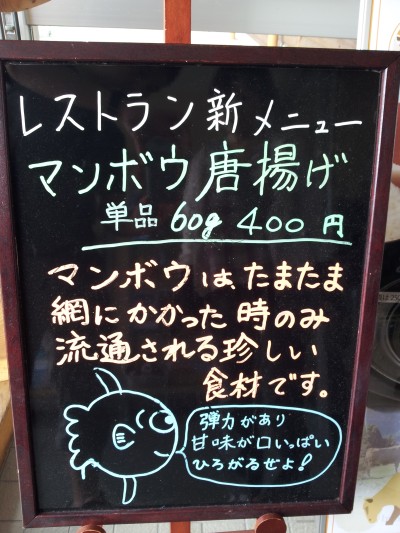 レストラン新メニュー
マンボウ唐揚げ
単品 60g 400円
マンボウは、たまたま
網にかかった時のみ
流通される珍しい
食材です。
弾力があり
甘味が口いっぱい
ひろがるぜよ!